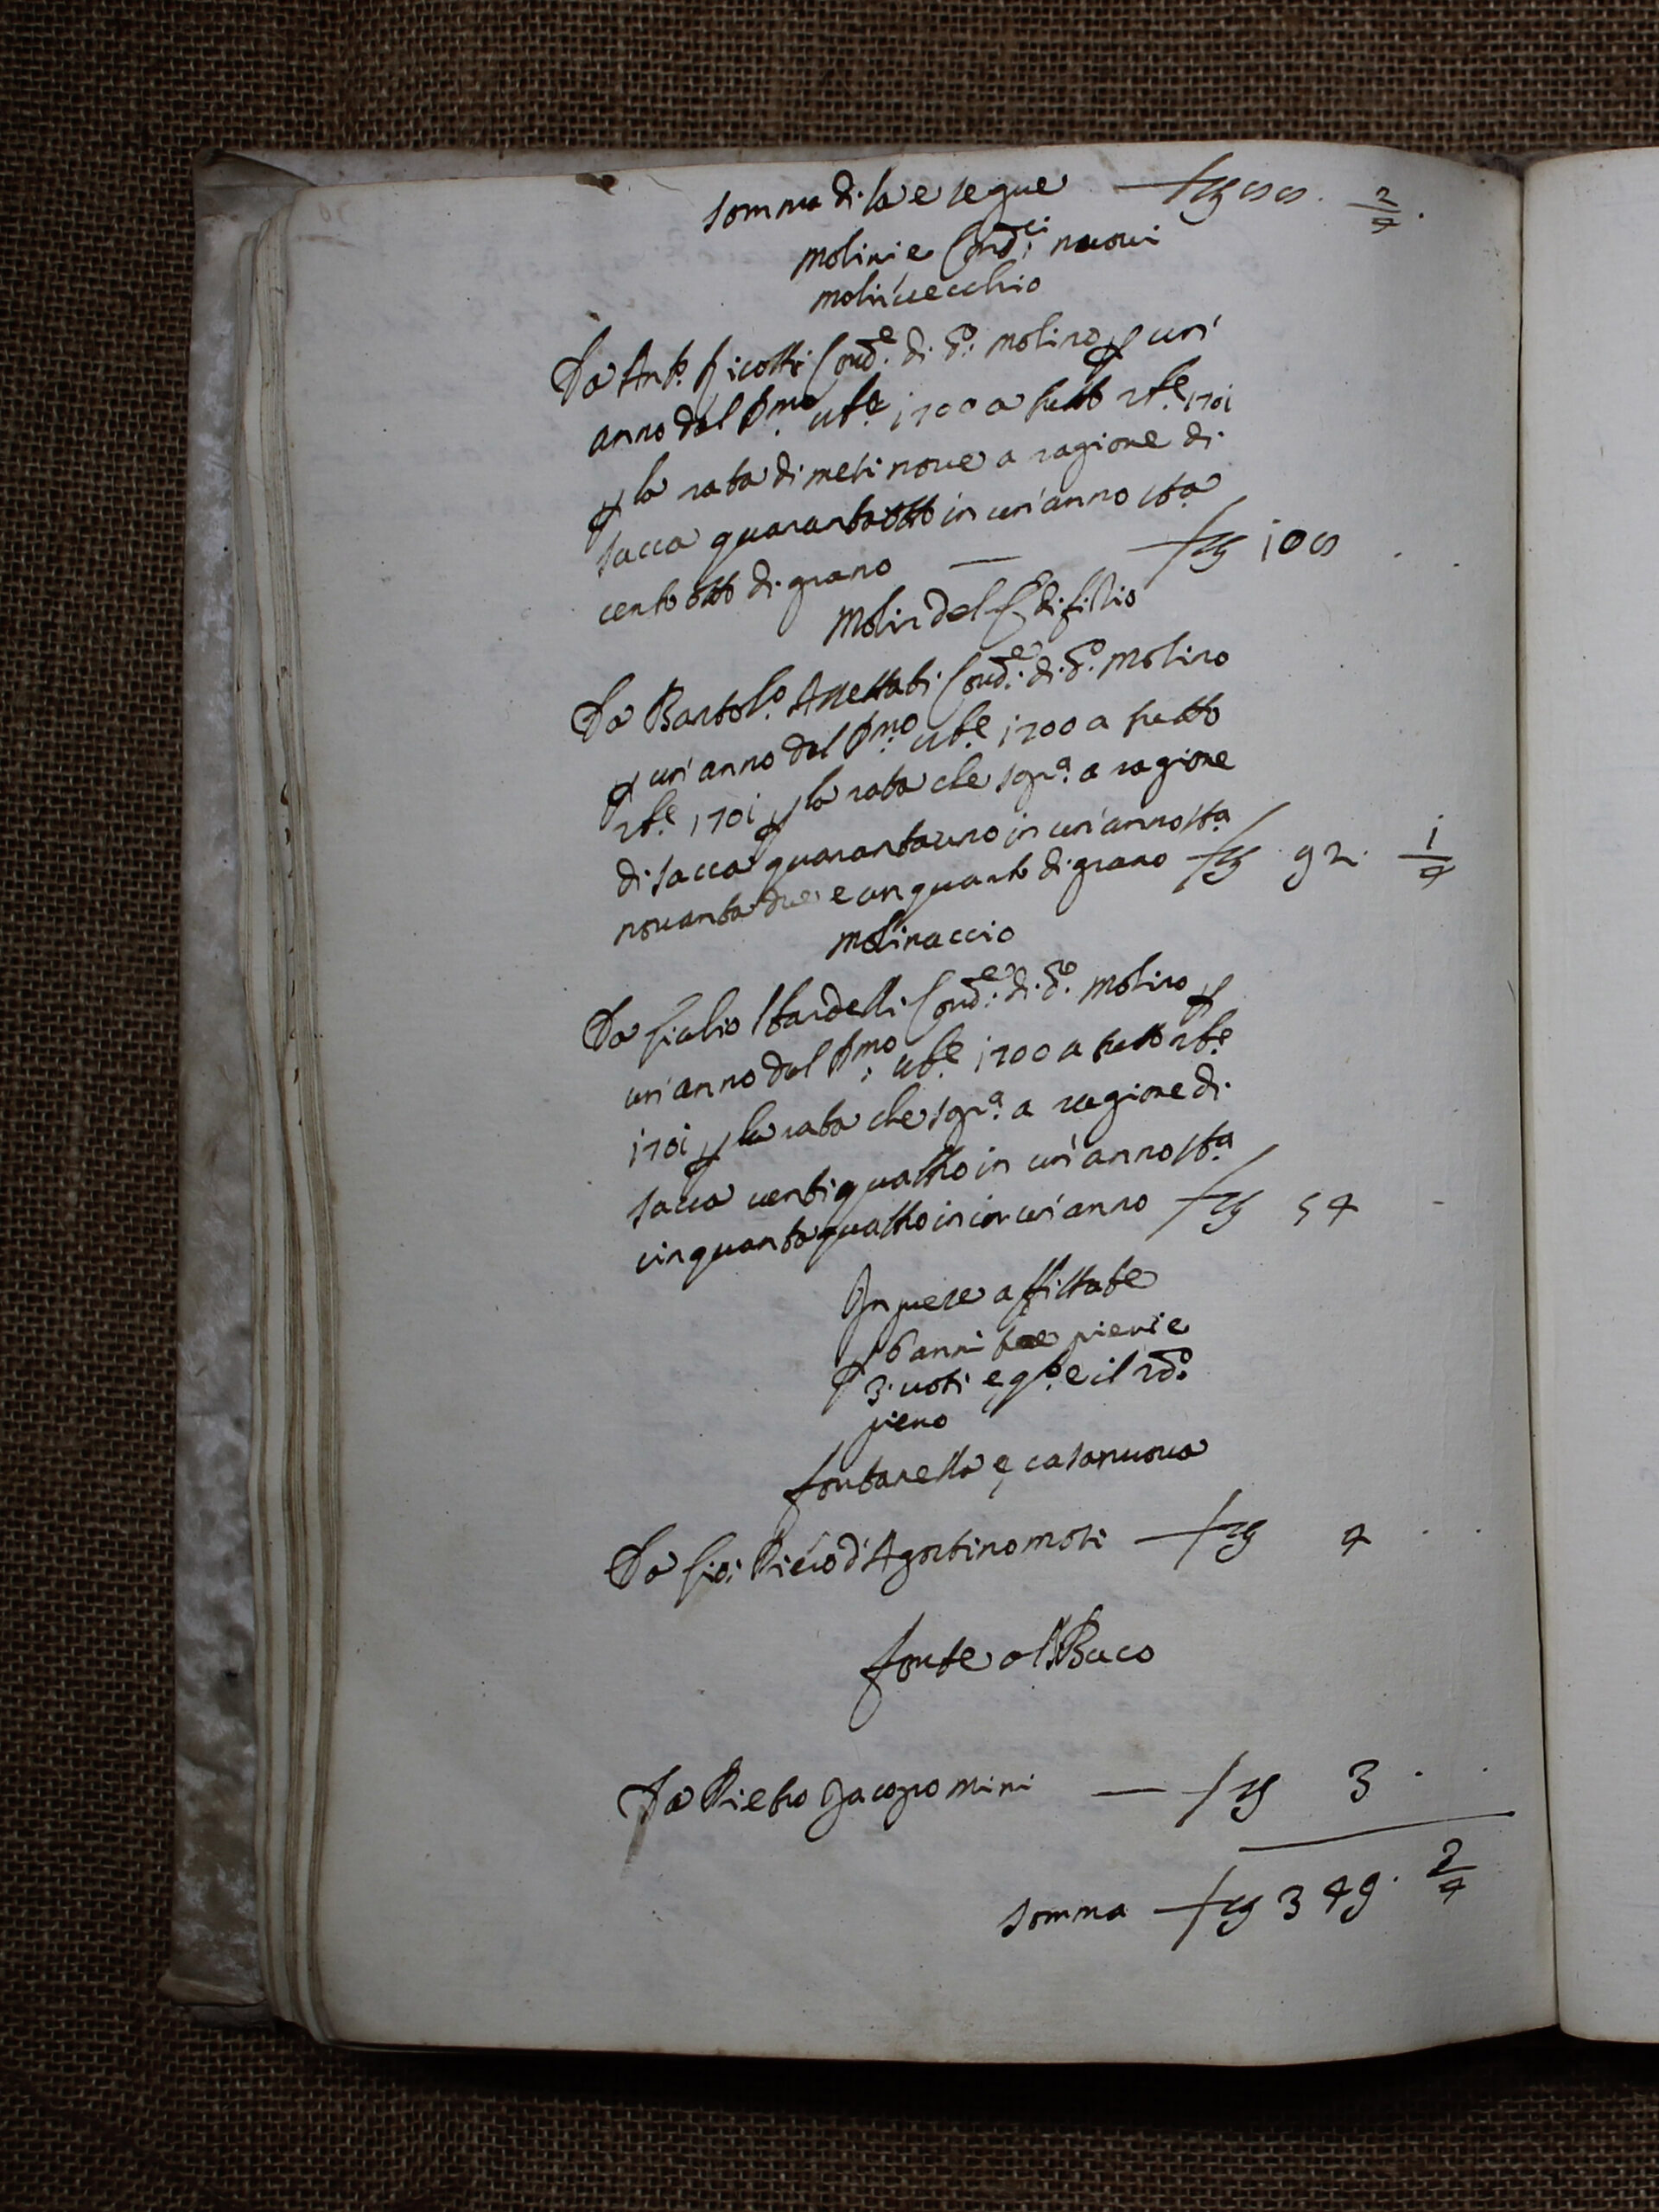 somma di la e segue — stg 88. 2/4
molini e Cond.ci nuovi
molin'vecchio
Da Ant.o Ricotti Cond.e di d.o molino p un'
anno dal p.mo 9b.e 1700 a tutto 8b.e 1701
p la rata di mesi nove a ragione di
sacca quarantotto in un'anno sta
cento otto di grano — stg 108
Molin del Edifitio
Da Bartol.o Cond.e di d.o molino
p un'anno dal p.mo 9b.e 1700 a tutto
8b.e 1701 p la rata che sop.a a ragione
di sacca quarantauno in un'anno st.a
novanta due e un quarto di grano stg 92. 1/4
molinaccio
Da Giulio Sbardelli Cond.e di d.o molino p
un'anno dal p.mo 9b.e 1700 a tutto 8b.e
1701 p la rata che sop.a a ragione di
sacca ventiquattro in un'anno st.a
cinquantaquattro in un'anno stg 54 -
In prese affittate
p 6 anni tre pieni e
3. voti e q.to e il 2do
pieno
fontanella e casanuova
Da Gio: Piero d'Agostino moti — stg 4
fonte al Buco
Da Pietro Jacopo mini — stg 3
somma — stg 349. 2/4